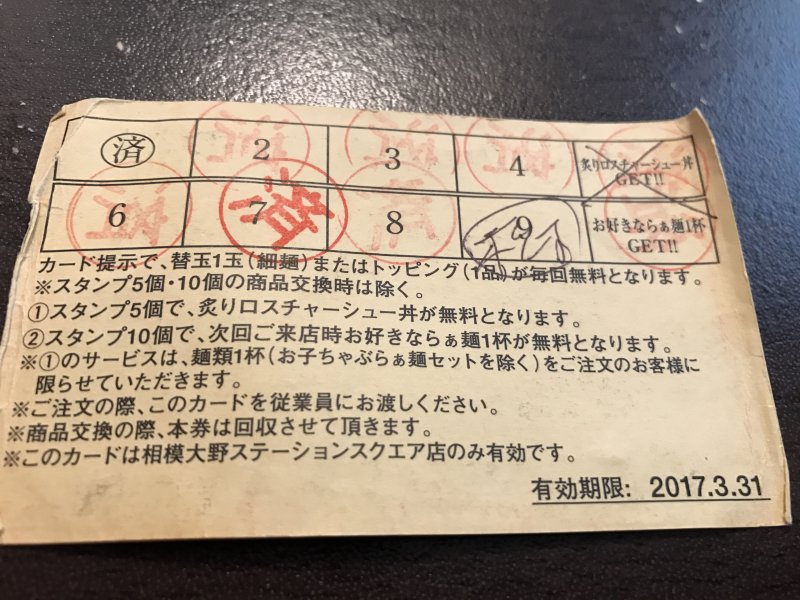 済 2 3 4 炙りロスチャーシュー丼
GET!!
6 7 8 9 お好きならぁ麺1杯
GET!!
カード提示で、替玉1玉(細麺)またはトッピング(1品)が毎回無料となります。
※スタンプ5個・10個の商品交換時は除く。
①スタンプ5個で、炙りロスチャーシュー丼が無料となります。
②スタンプ10個で、次回ご来店時お好きならぁ麺1杯が無料となります。
※①のサービスは、麺類1杯(お子ちゃぶらぁ麺セットを除く)をご注文のお客様に
限らせていただきます。
※ご注文の際、このカードを従業員にお渡しください。
※商品交換の際、本券は回収させて頂きます。
※このカードは相模大野ステーションスクエア店のみ有効です。
有効期限: 2017.3.31